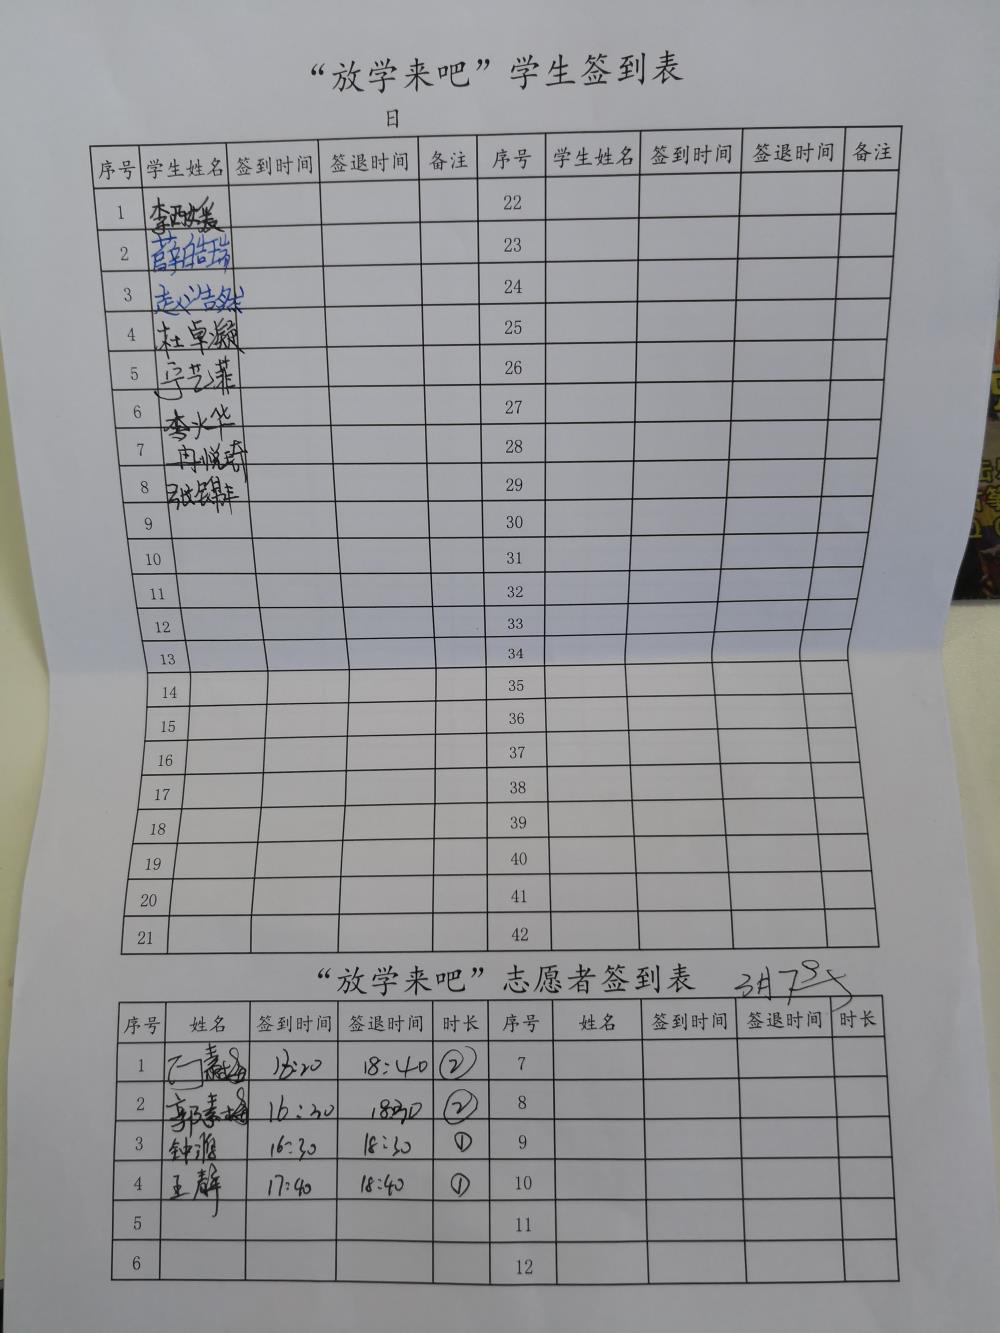 “放学来吧”学生签到表
日
序号 学生姓名 签到时间 签退时间 备注 序号 学生姓名 签到时间 签退时间 备注
1 22
2 薛皓瑞 23
3 赵浩然 24
4 杜卓凝 25
5 宁艺菲 26
6 李火华 27
7 冉悦琦 28
8 张锦丰 29
9 30
10 31
11 32
12 33
13 34
14 35
15 36
16 37
17 38
18 39
19 40
20 41
21 42
“放学来吧”志愿者签到表 3月7号
序号 姓名 签到时间 签退时间 时长 序号 姓名 签到时间 签退时间 时长
1 18:40 ② 7
2 郭素梅 16:30 1830 ② 8
3 16:30 18:30 ① 9
4 王静 17:40 18:40 ① 10
5 11
6 12